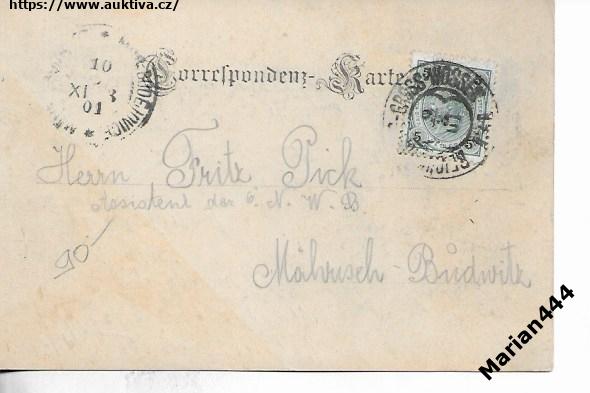 https://www.auktiva.cz/
Correspondenz-Karte
10
XI
01
BUDĚJOVICE
GROSS-WOSSEK
5
Herrn Fritz Pick
Assistent der Ö. N. W. B.
Mährisch-Budwitz
90-
Marian444